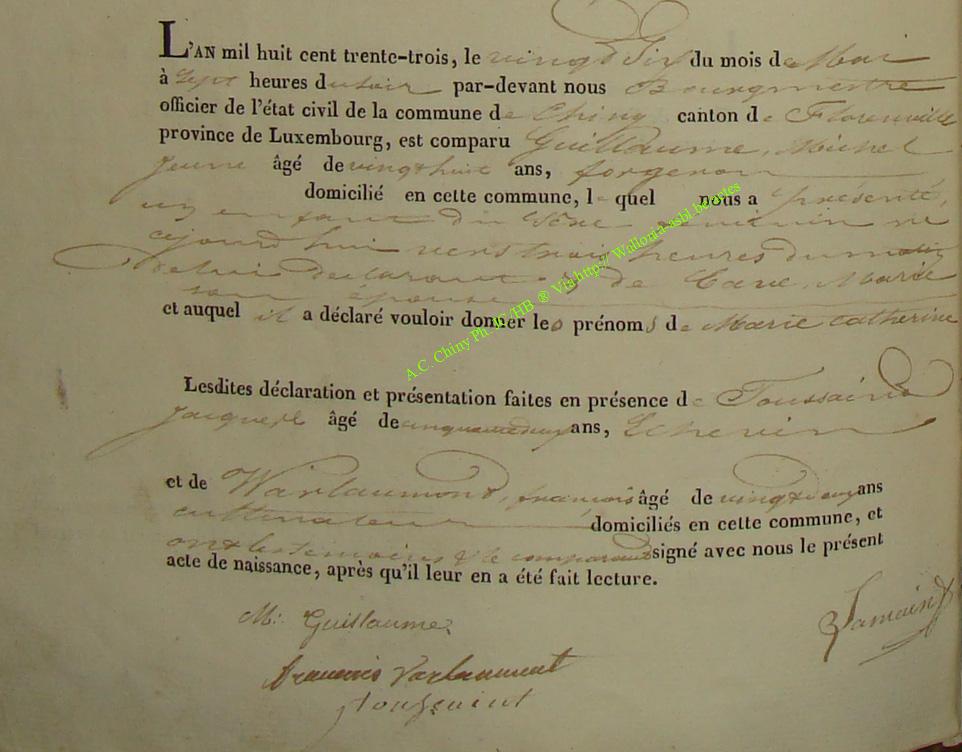 L'AN mil huit cent trente-trois, le vingt Six du mois de Mai
à Sept heures du soir par-devant nous Bourgmestre
officier de l'état civil de la commune de Chiny canton de Florenville
province de Luxembourg, est comparu Guillaume, Michel
jeune âgé de vingt huit ans, forgeron
domicilié en cette commune, le quel nous a présenté,
un enfant du Sexe feminin né
cejourd'hui vers trois heures du matin
de lui declarant & de Cave, Marie
son épouse
et auquel il a déclaré vouloir donner les prénoms de Marie Catherine
A.C. Chiny Ph. /HB ® Via http// Wallonia-asbl.be/actes
Lesdites déclaration et présentation faites en présence de Toussaint
Jacques âgé de cinquante deux ans, Echevin
et de Warlaumont, françois âgé de vingt deux ans
cultivateur domiciliés en cette commune, et
ont les temoins & le comparant signé avec nous le présent
acte de naissance, après qu'il leur en a été fait lecture.
M: Guillaume
francois Varlaumont
toussaint